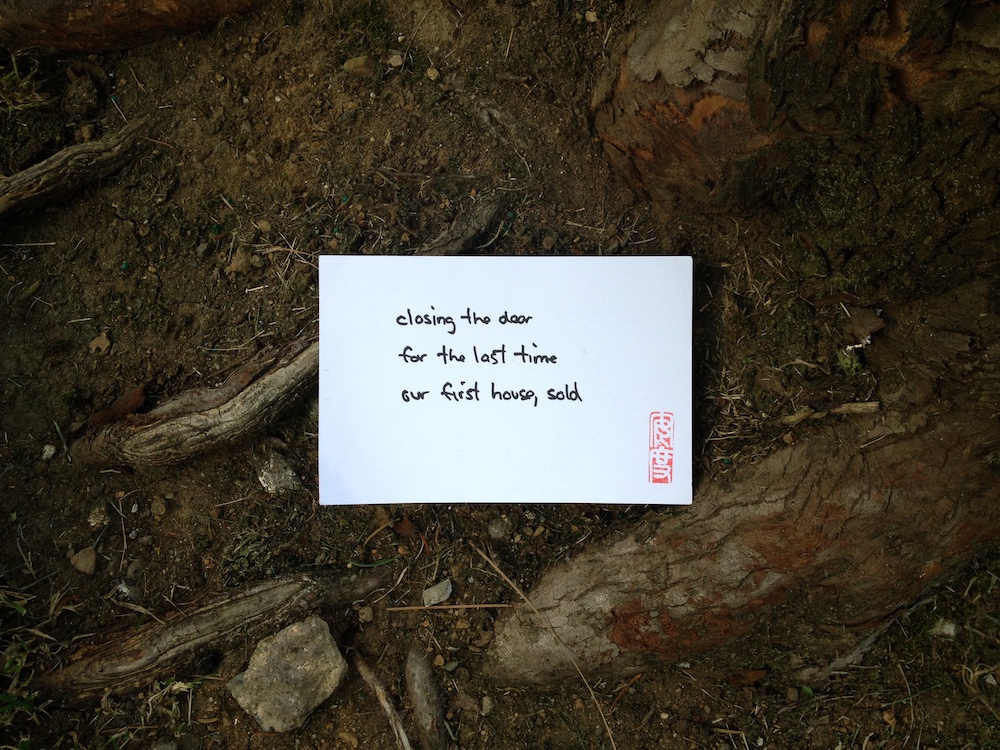 closing the door
for the last time
our first house, sold